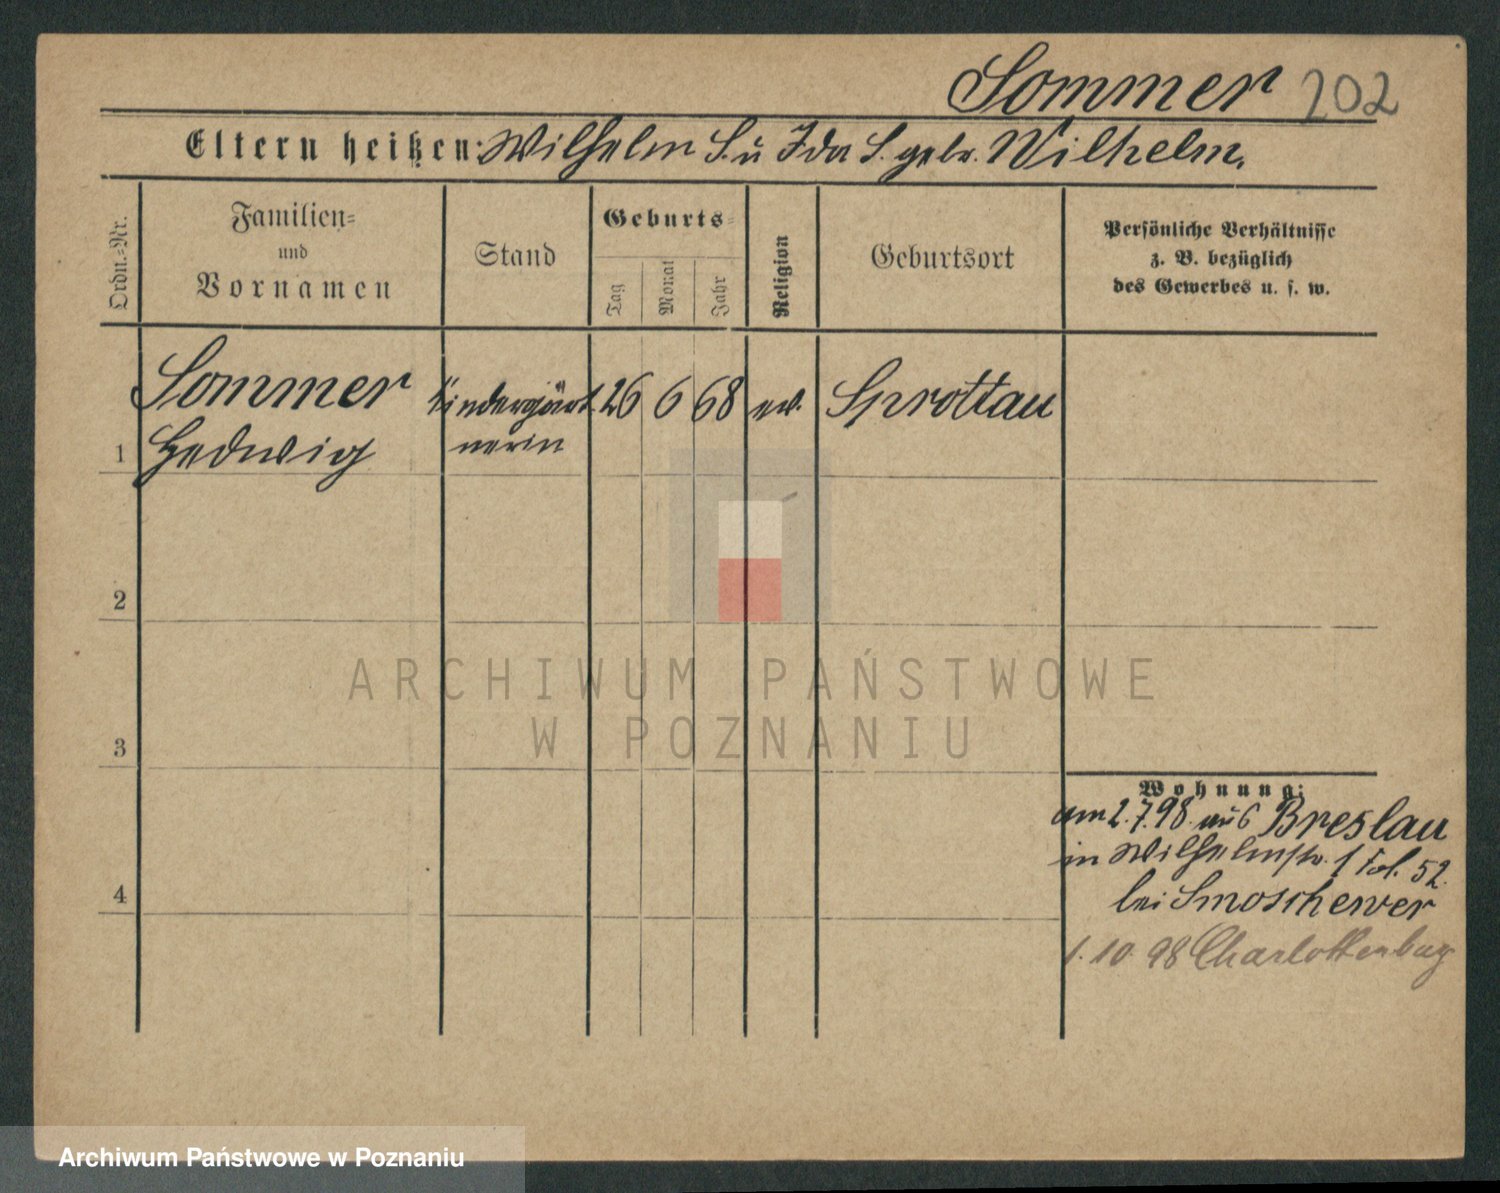 Sommer 202
Eltern heißen: Wilhelm S. u Ida S. geb. Wilhelm.
Ordn.=Nr.
Familien=
und
Vornamen
Stand
Geburts=
Tag
Monat
Jahr
Religion
Geburtsort
Persönliche Verhältnisse
z. B. bezüglich
des Gewerbes u. s. w.
Sommer Kindergärt 26 6 68 ev. Sprottau
1 Hedwig nerin
2
ARCHIWUM PAŃSTWOWE
W POZNANIU
3
Wohnung:
am 2.7.98. aus Breslau
in Wilhelmstr. 1 Fol. 52.
4
bei Smoschewer
1.10.98 Charlottenburg
Archiwum Państwowe w Poznaniu